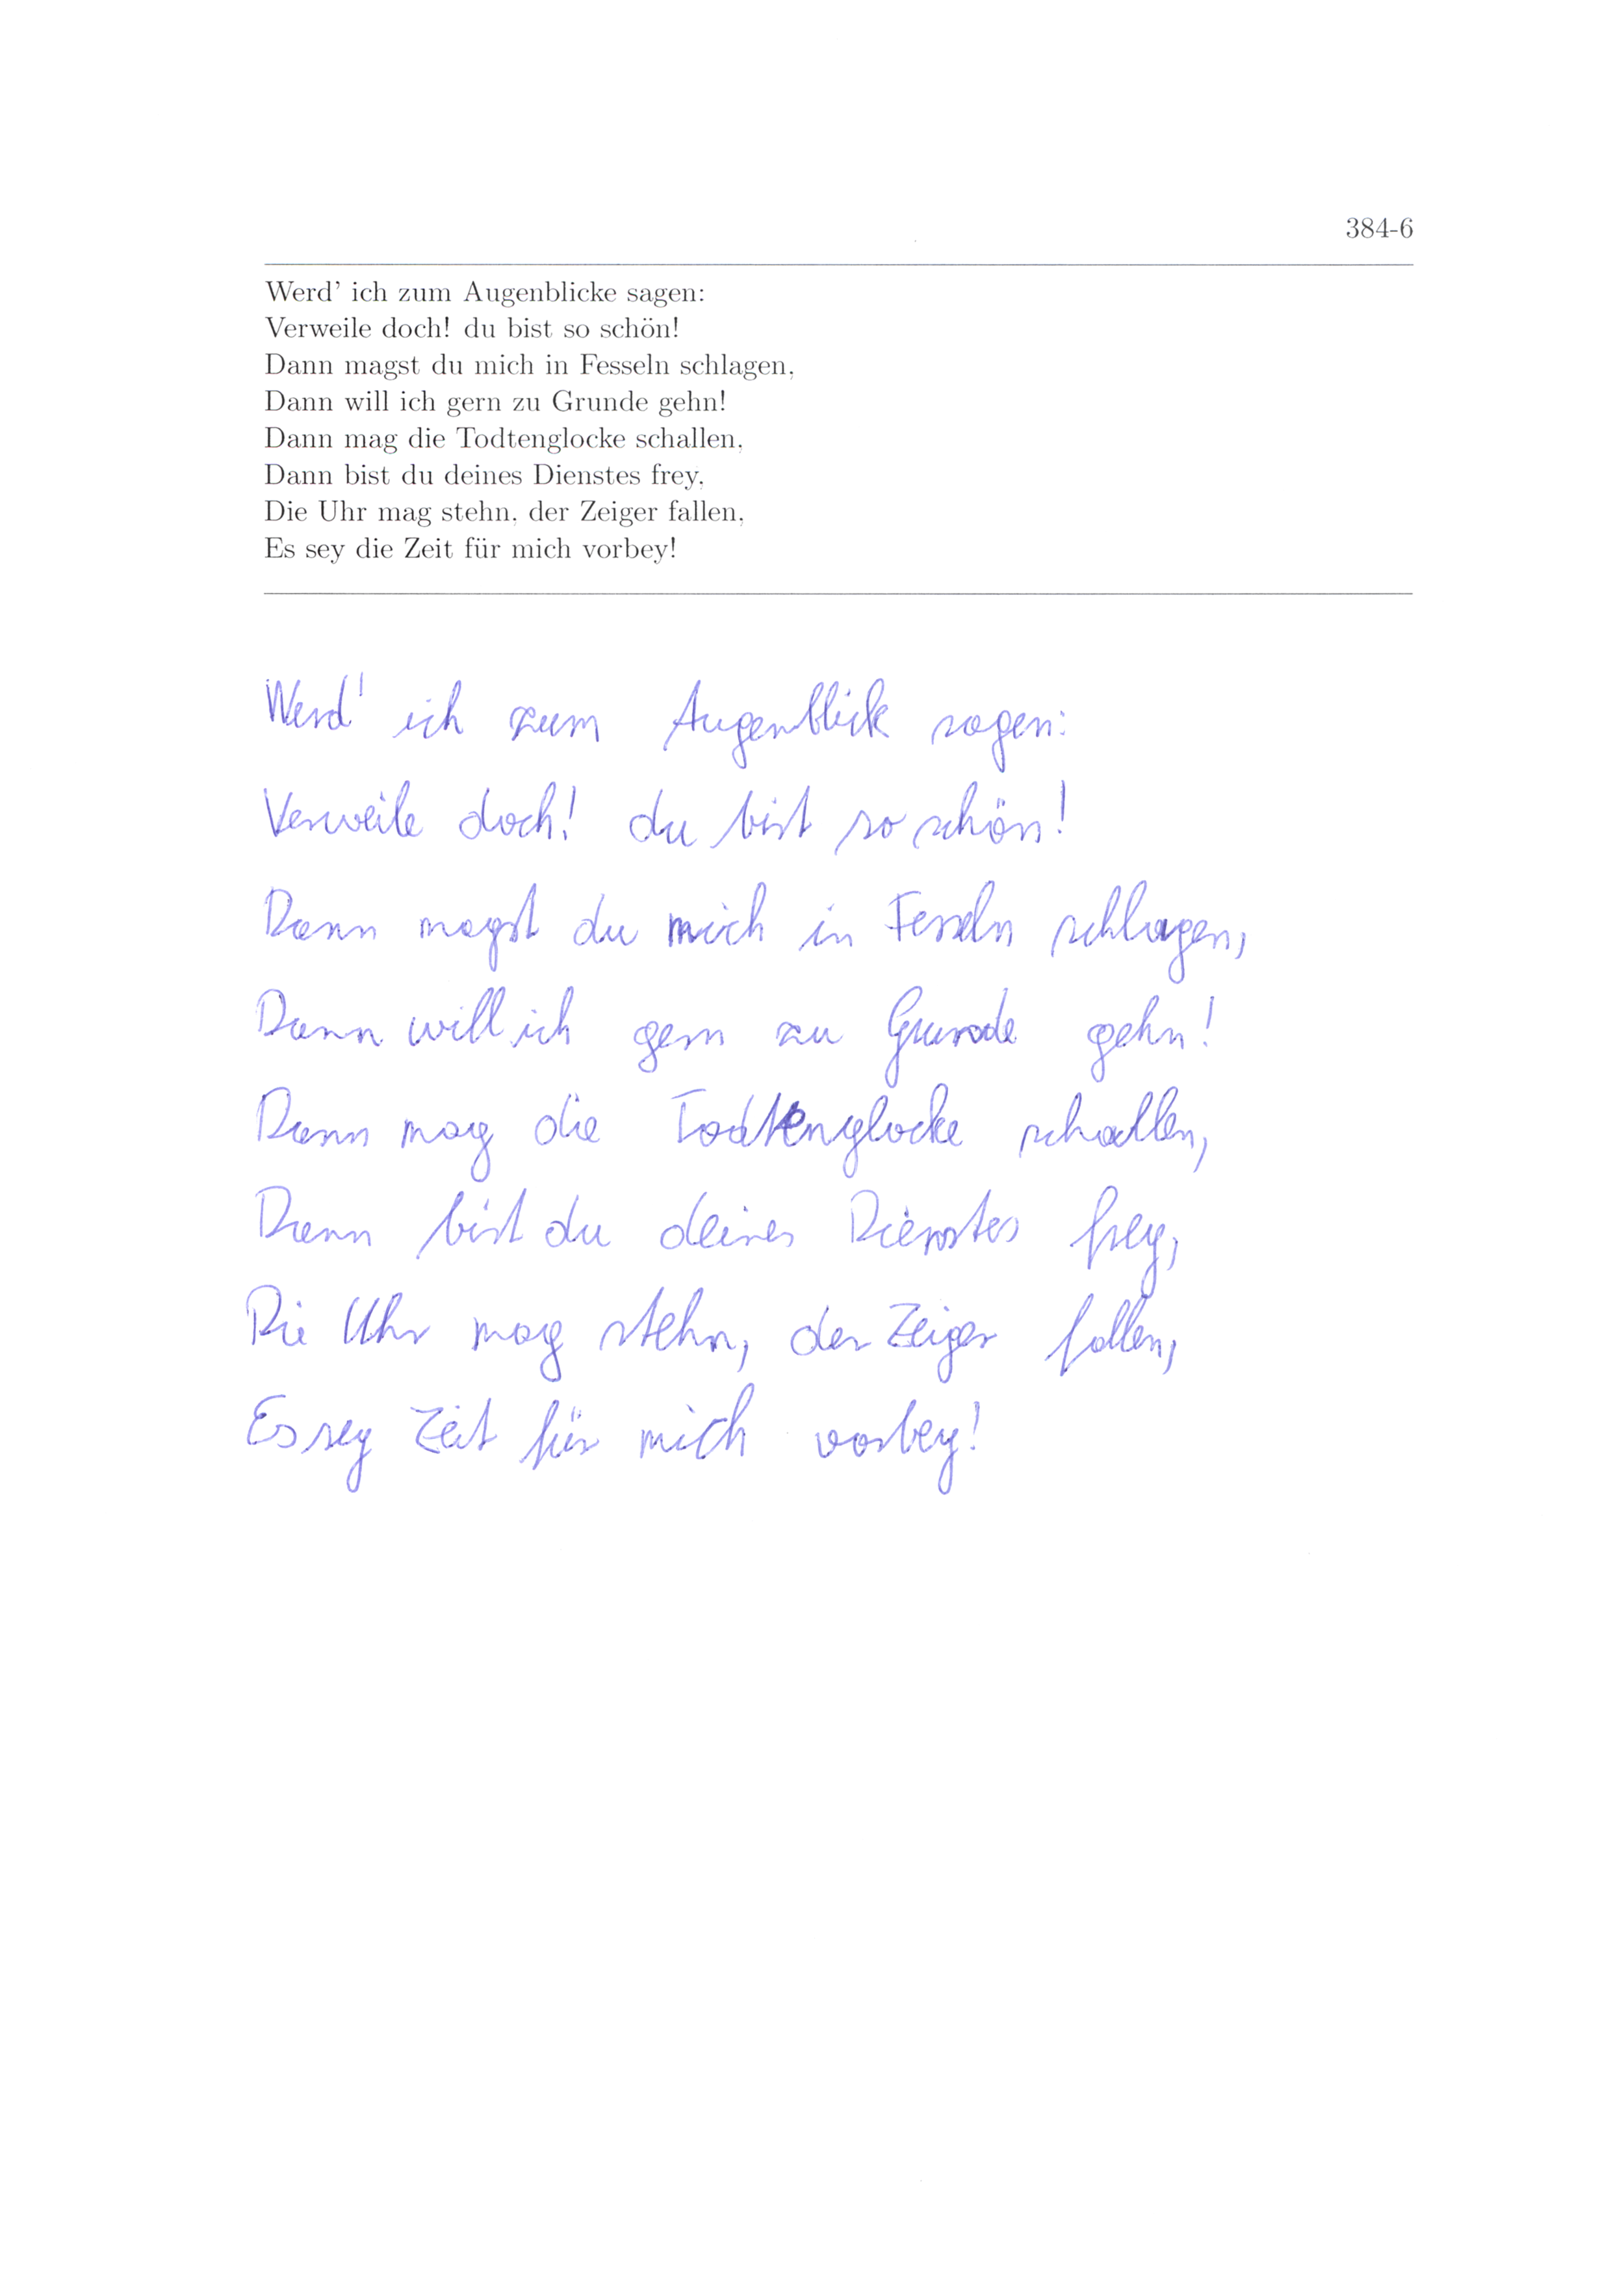 384-6
Werd' ich zum Augenblicke sagen:
Verweile doch! du bist so schön!
Dann magst du mich in Fesseln schlagen,
Dann will ich gern zu Grunde gehn!
Dann mag die Todtenglocke schallen,
Dann bist du deines Dienstes frey,
Die Uhr mag stehn, der Zeiger fallen,
Es sey die Zeit für mich vorbey!
Werd' ich zum Augenblick sagen:
Verweile doch! du bist so schön!
Dann magst du mich in Fesseln schlagen,
Dann will ich gern zu Grunde gehn!
Dann mag die Todtenglocke schallen,
Dann bist du deines Dienstes frey,
Die Uhr mag stehn, der Zeiger fallen,
Es sey Zeit für mich vorbey!